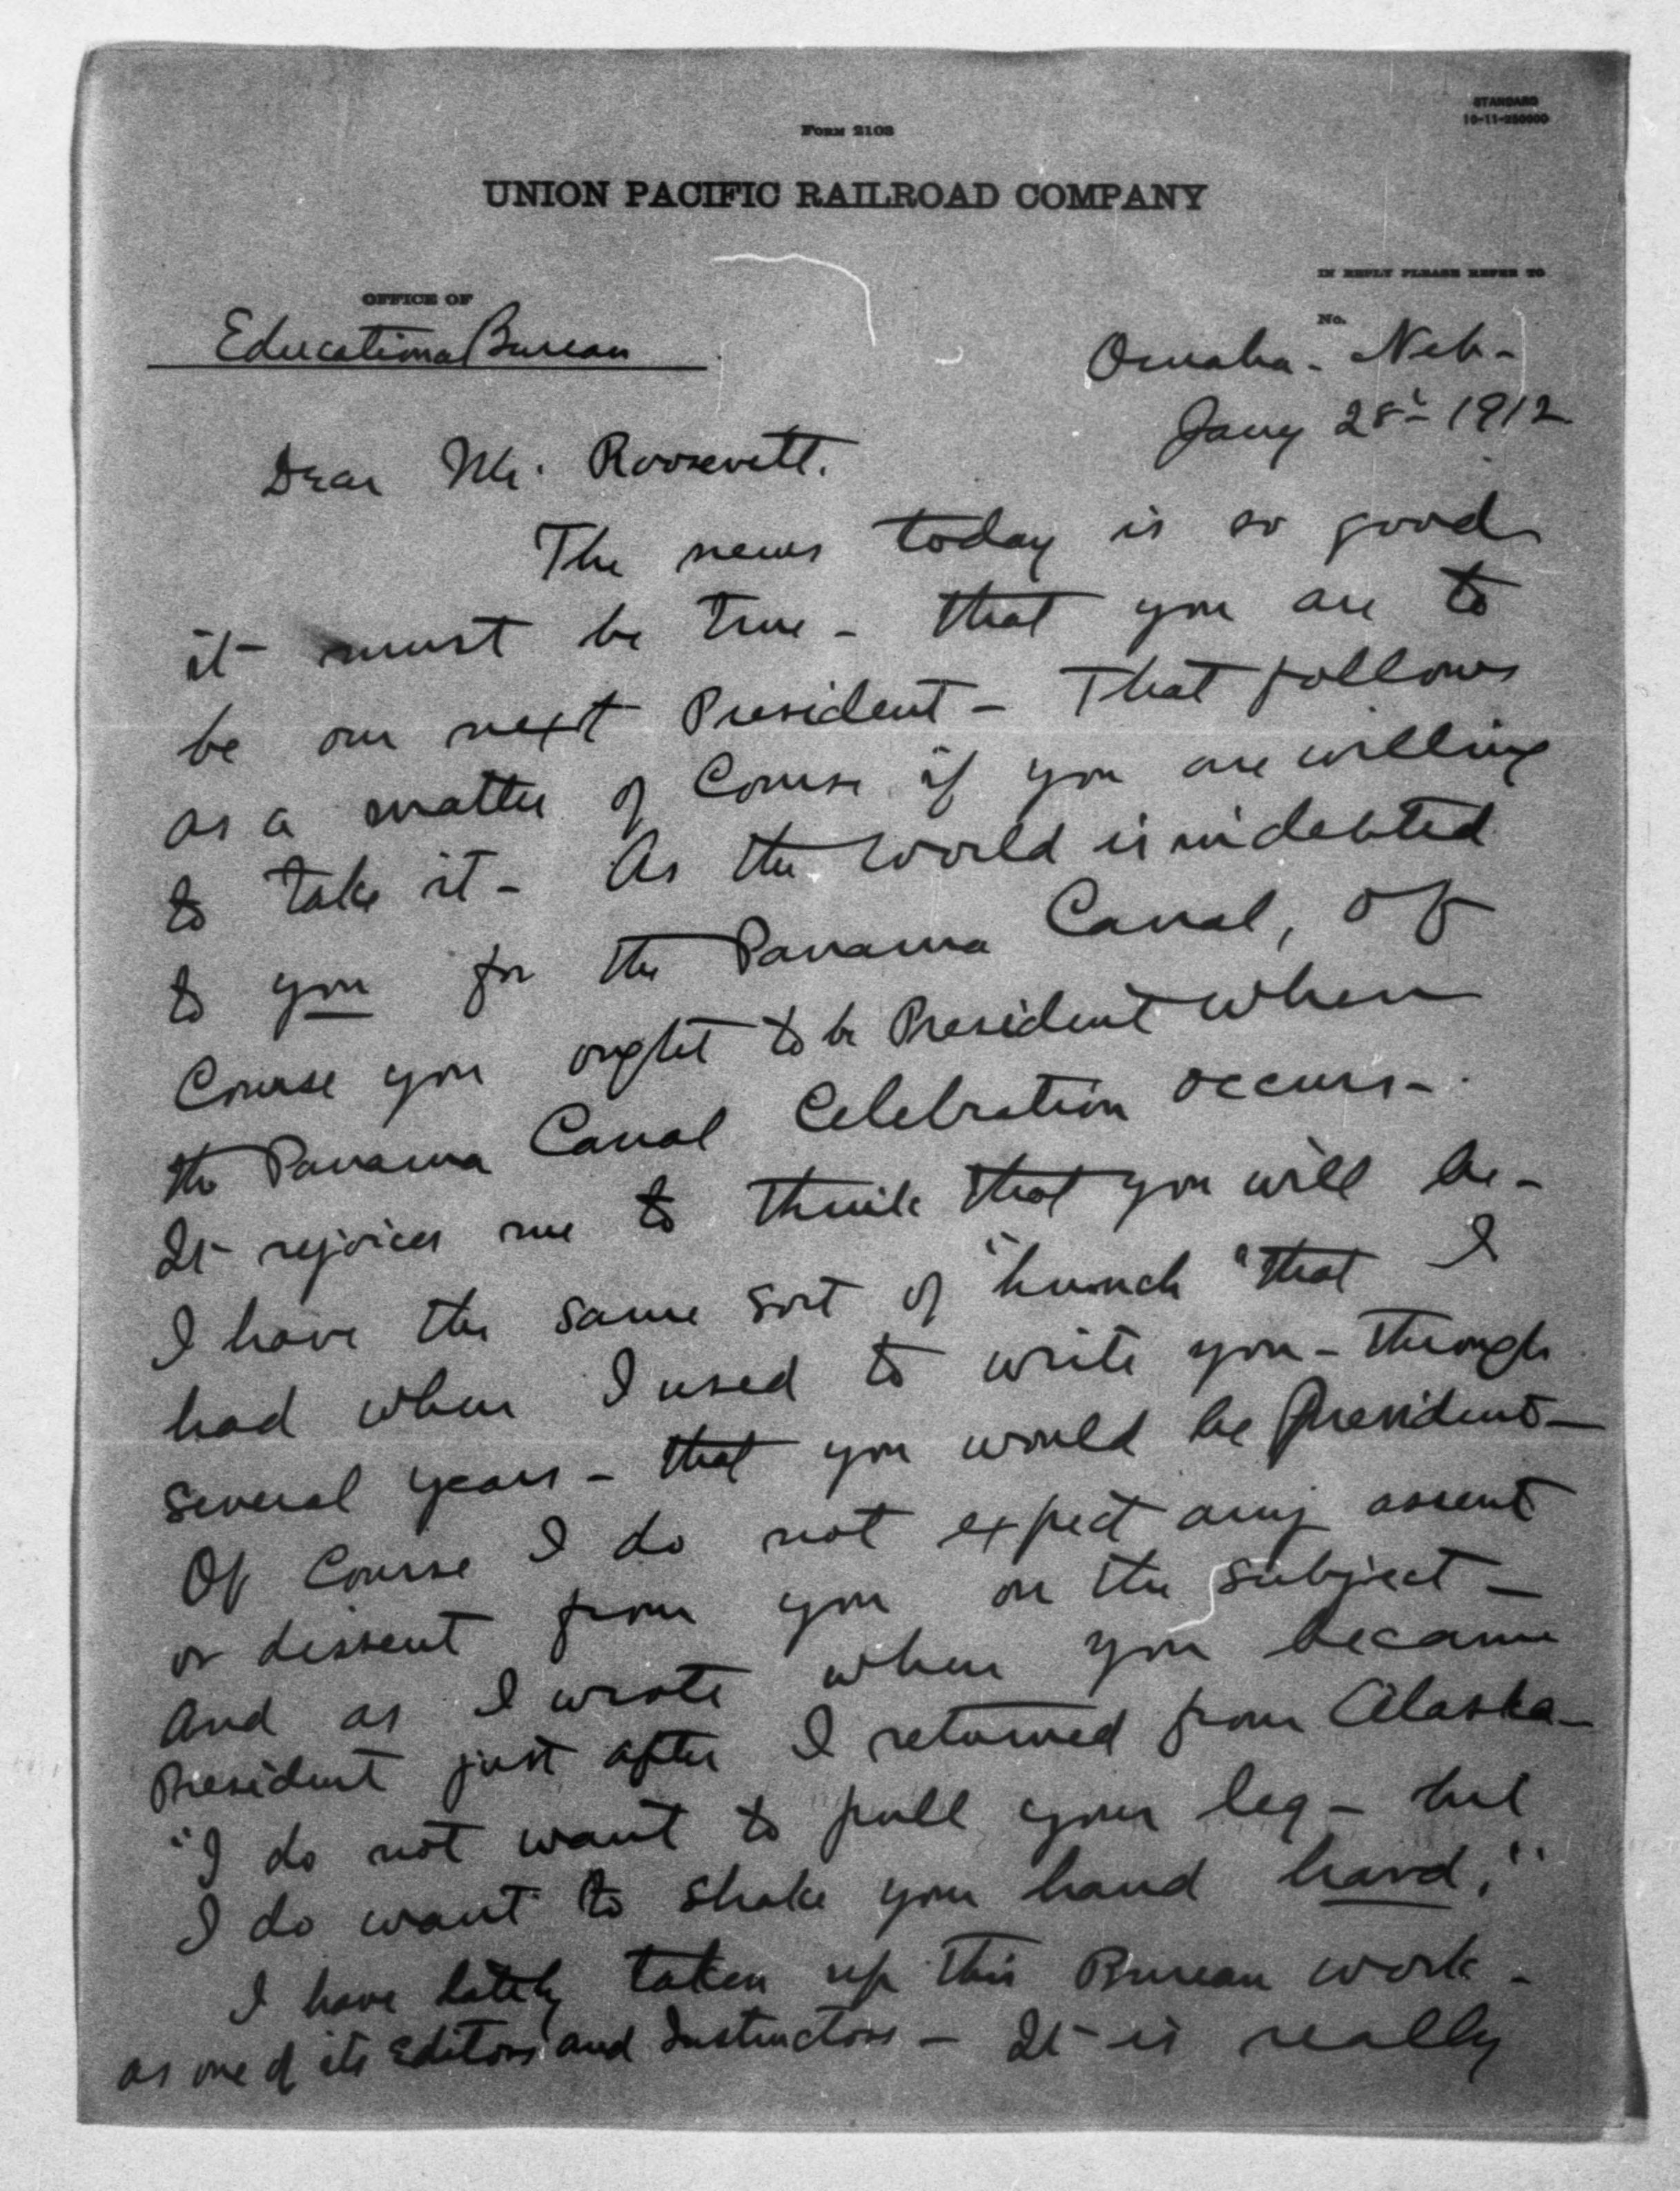 STANDARD
10-11-250000
Form 2103
UNION PACIFIC RAILROAD COMPANY
IN REPLY PLEASE REFER TO
No.
OFFICE OF
Educational Bureau
Omaha - Neb -
Jany 28 - 1912
Dear Mr. Roosevelt.
The news today is so good
it must be true - that you are to
be our next President - That follows
as a matter of Course if you are willing
to take it - As the world is indebted
to you for the Panama Canal, of
Course you ought to be President when
the Panama Canal Celebration occurs -
It rejoices me to think that you will be -
I have the same sort of "hunch" that I
had when I used to write you - through
several years - that you would be President -
Of Course I do not expect any assent
or dissent from you on the subject -
And as I wrote when you became
President just after I returned from Alaska -
"I do not want to pull your leg - but
I do want to shake your hand hard."
I have lately taken up this Bureau work -
as one of its Editors and Instructors - It is really